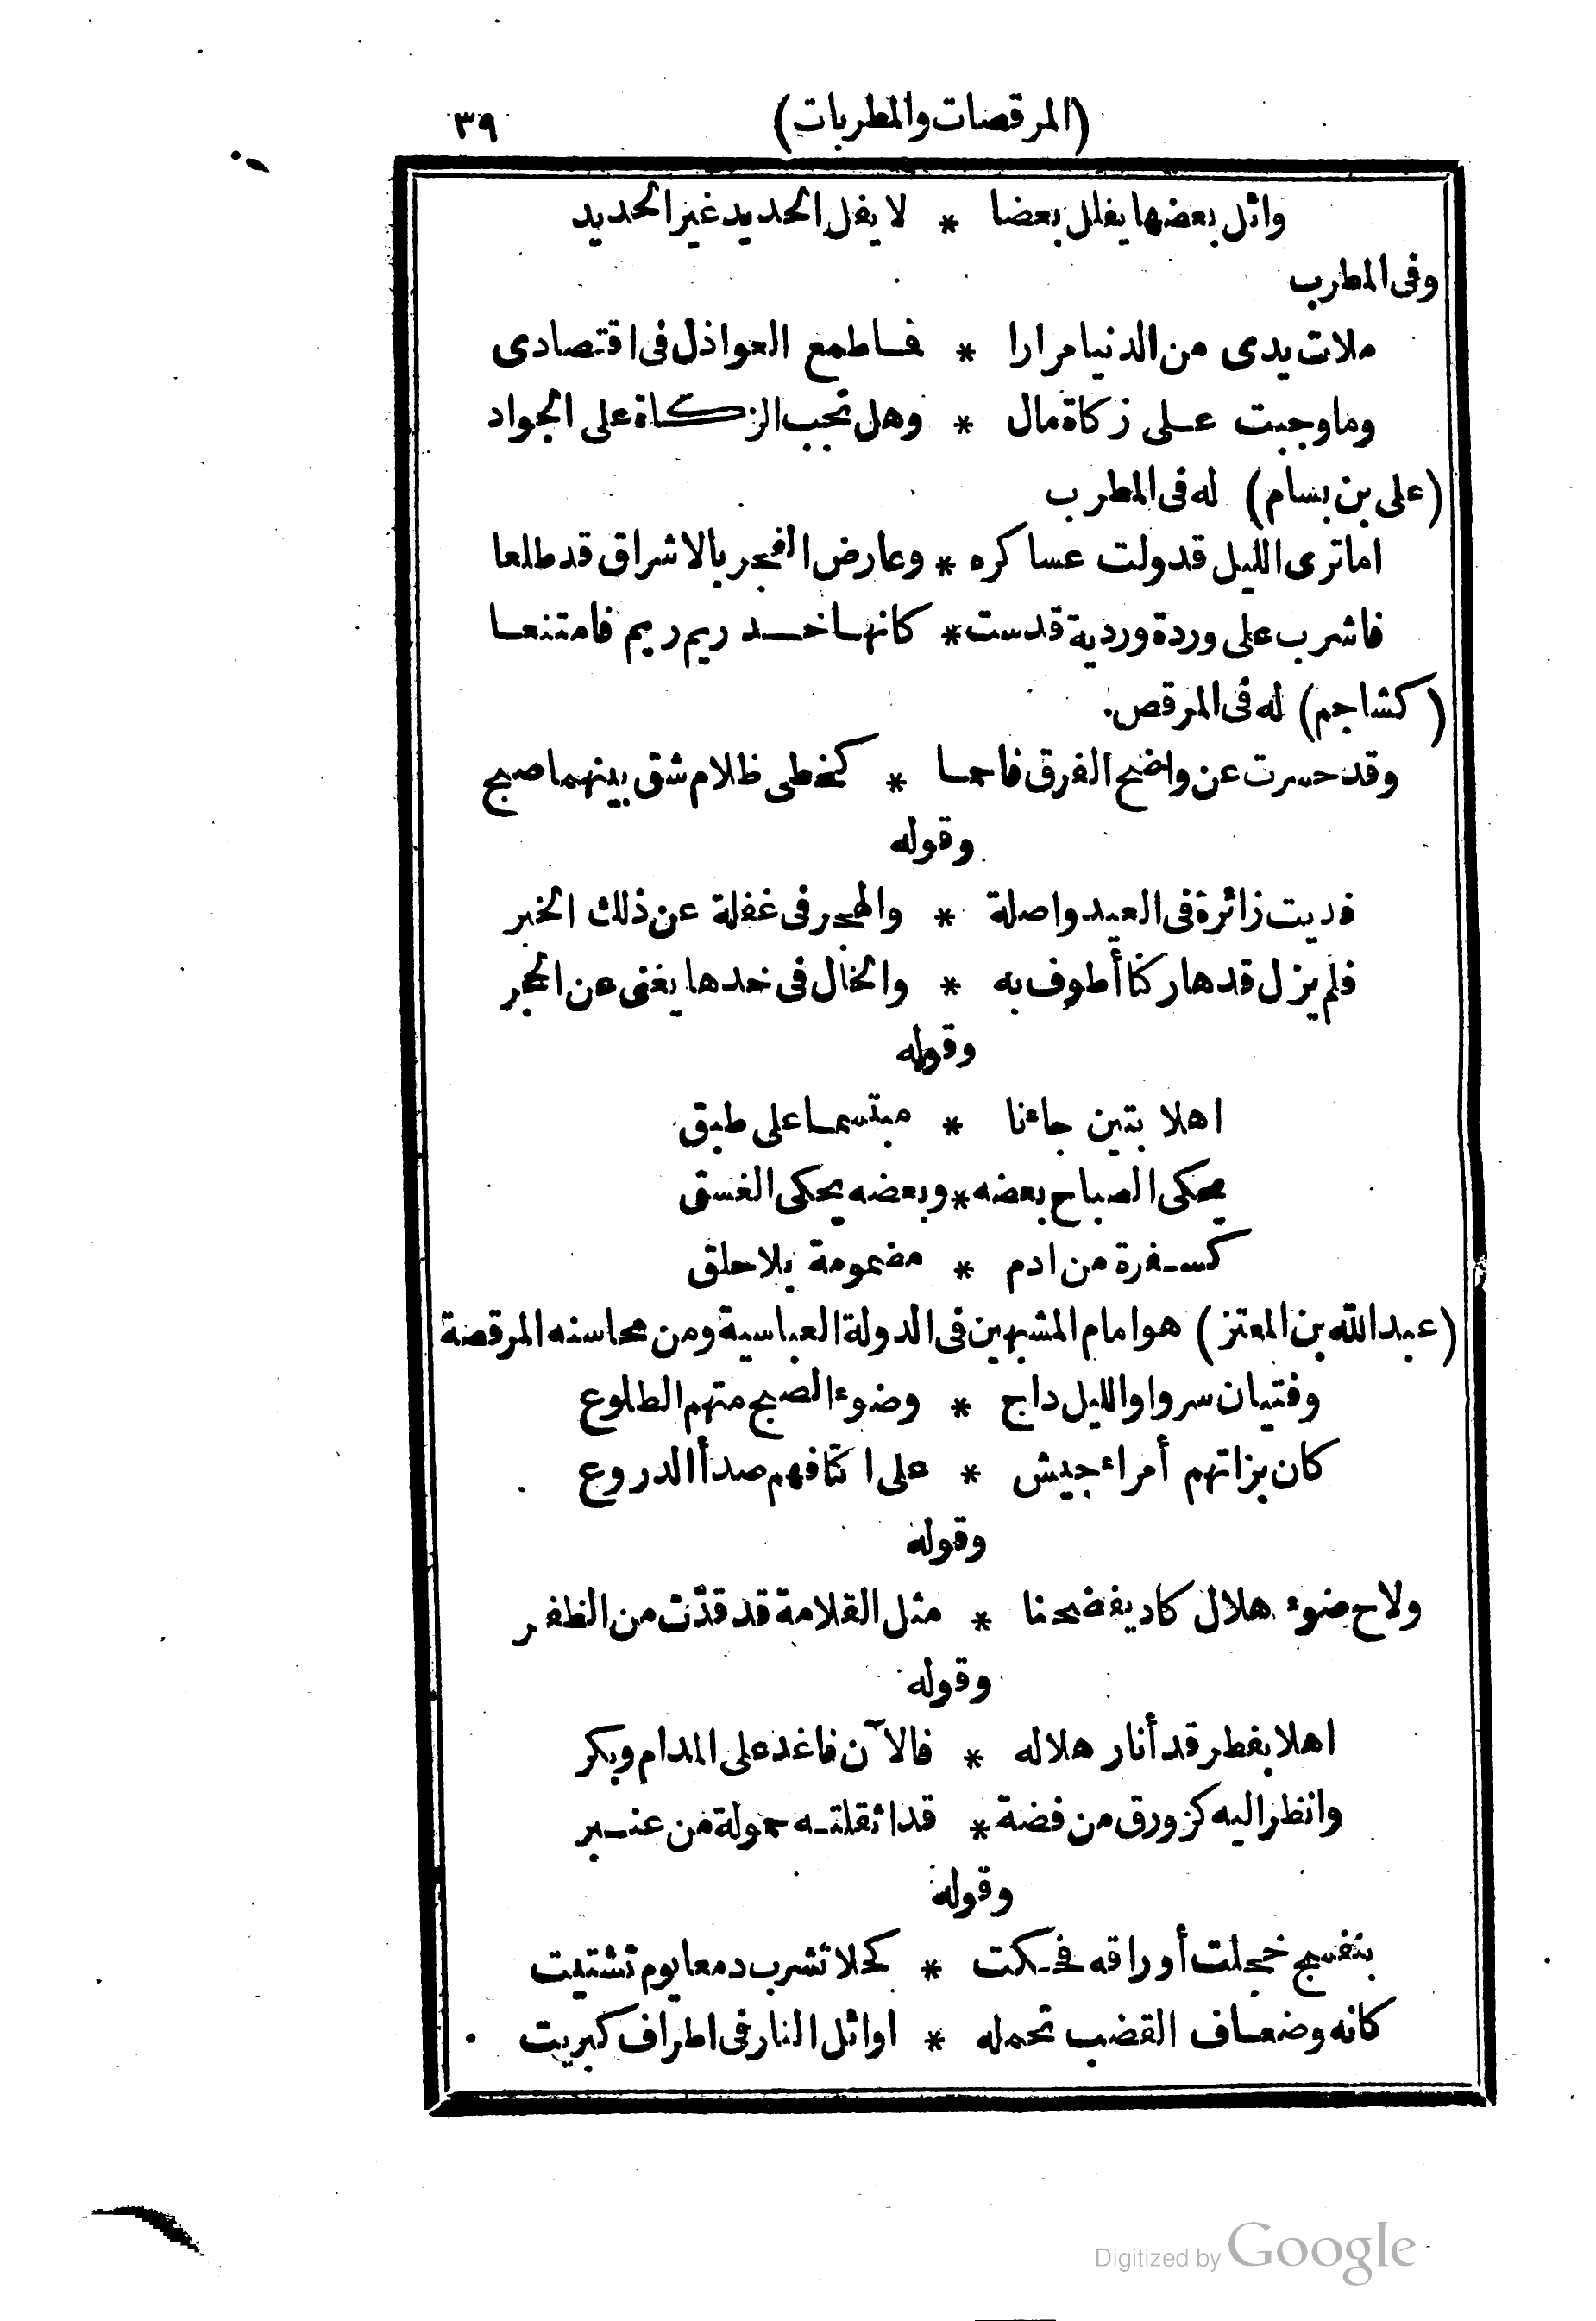 (المرقصات والمطربات) ٣٩
واتل بعضها يفلل بعضا * لا يفل الحديد غير الحديد
وفى المطرب
ملات يدى من الدنيا مرارا * فما طمع العواذل فى اقتصادى
وما وجبت على زكاة مال * وهل تجب الزكاة على الجواد
(على بن بسام) له فى المطرب
اما ترى الليل قد ولت عساكره * وعارض الفجر بالاشراق قد طلعا
فاشرب على وردة وردية قدست * كانها خد ريم ريم فامتنعا
(كشاجم) له فى المرقص.
وقد حسرت عن واضح الفرق فاحما * كخطى ظلام شق بينهما صبح
وقوله
فديت زائرة فى العيد واصلة * والهجر فى غفلة عن ذلك الخبر
فلم يزل قدها ركنا أطوف به * والخال فى خدها يغنى عن الحجر
وقوله
اهلا بتين جاءنا * مبتسما على طبق
يحكى الصباح بعضه * وبعضه يحكى الغسق
كسفرة من ادم * مضمومة بلا حلق
(عبد الله بن المعتز) هو امام المشبهين فى الدولة العباسية ومن محاسنه المرقصة
وفتيان سروا والليل داج * وضوء الصبح متهم الطلوع
كان بزاتهم أمراء جيش * على اكتافهم صدأ الدروع
وقوله
ولاح ضوء هلال كاد يفضحنا * مثل القلامة قد قدّت من الظفر
وقوله
اهلا بفطر قد أنار هلاله * فالآن فاغد على المدام وبكر
وانظر اليه كزورق من فضة * قد اثقلته حمولة من عنبر
وقوله
بنفسج خجلت أوراقه فحكت * كحلا تشرب دمعا يوم تشتيت
كانه وضعاف القضب تحمله * اوائل النار فى اطراف كبريت
Digitized by Google